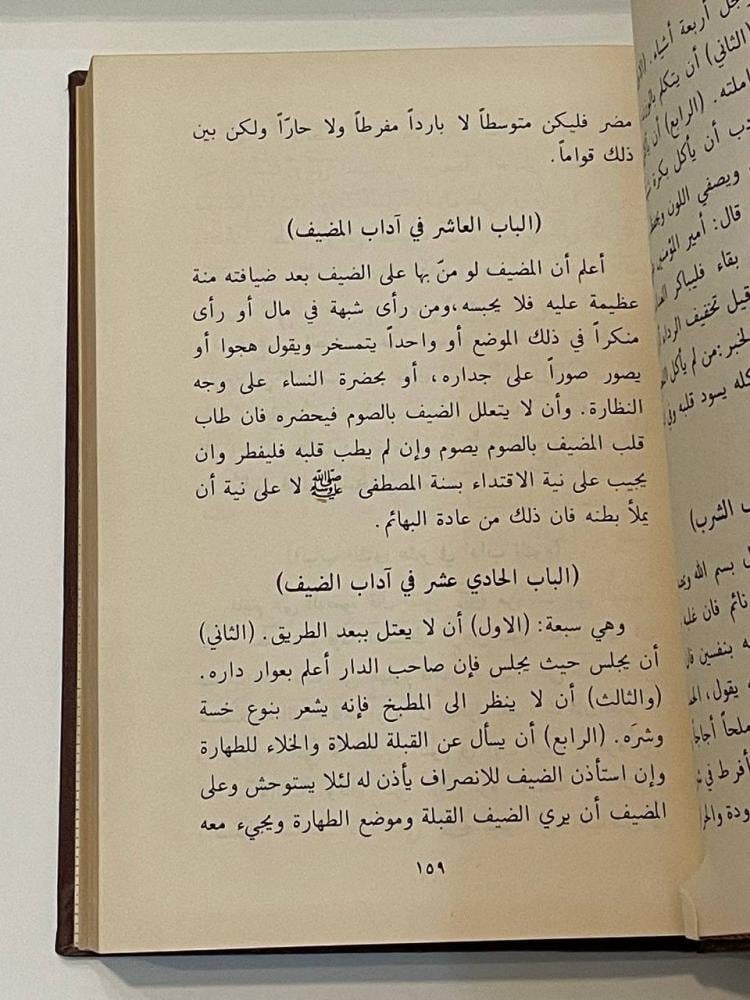 مضر فليكن متوسطاً لا بارداً مفرطاً ولا حارّاً ولكن بين
ذلك قواماً.
(الباب العاشر في آداب المضيف)
أعلم أن المضيف لو منّ بها على الضيف بعد ضيافته منة
عظيمة عليه فلا يحبسه،ومن رأى شبهة في مال أو رأى
منكراً في ذلك الموضع أو واحداً يتمسخر ويقول هجوا أو
يصور صوراً على جداره، أو بحضرة النساء على وجه
النظارة. وأن لا يتعلل الضيف بالصوم فيحضره فان طاب
قلب المضيف بالصوم يصوم وإن لم يطب قلبه فليفطر وان
يجيب على نية الاقتداء بسنة المصطفى ﷺ لا على نية أن
يملأ بطنه فان ذلك من عادة البهائم.
(الباب الحادي عشر في آداب الضيف)
وهي سبعة: (الاول) أن لا يعتل ببعد الطريق. (الثاني)
أن يجلس حيث يجلس فإن صاحب الدار أعلم بعوار داره.
(والثالث) أن لا ينظر الى المطبخ فإنه يشعر بنوع خسة
وشرَه. (الرابع) أن يسأل عن القبلة للصلاة والخلاء للطهارة
وإن استأذن الضيف للانصراف يأذن له لئلا يستوحش وعلى
المضيف أن يري الضيف القبلة وموضع الطهارة ويجيء معه
١٥٩
أربعة أشياء.
(الثاني) أن يتكلم
(الرابع) أن
أن يأكل بكرة
ويصفي اللون
قال: أمير
بقاء فليباكر
قيل تخفيف الرداء
من لم يأكل
يسود قلبه
الشرب)
بسم الله
نائم فان
بنفسين
يقول،
ملحاً أجاجاً
أفرط في